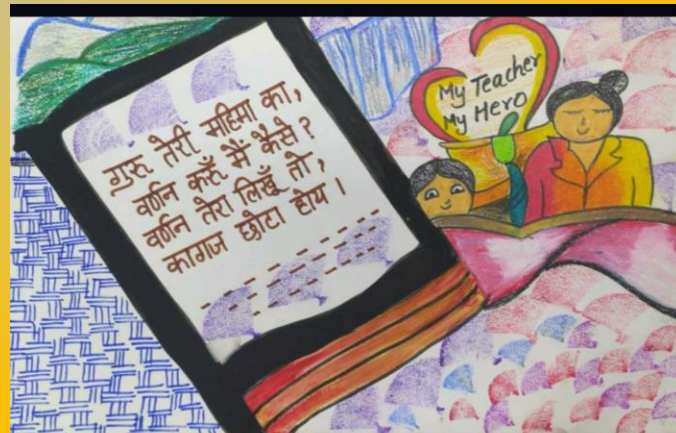 गुरू तेरी महिमा का,
वर्णन करुँ मैं कैसे?
वर्णन तेरा लिखूँ तो,
कागज छोटा होय।
My Teacher
My Hero